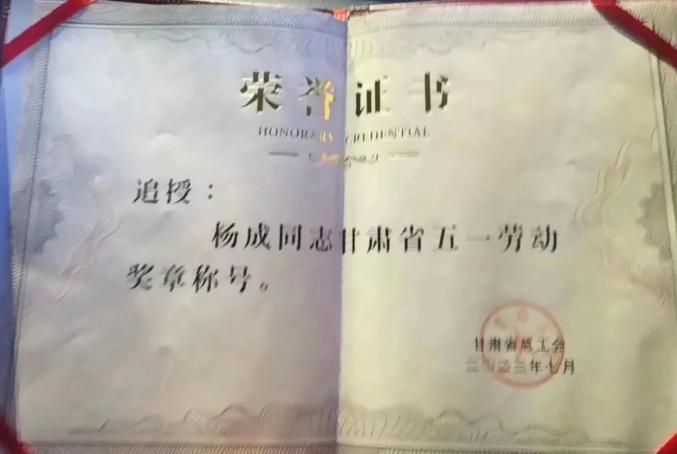 荣誉证书
HONORARY CREDENTIAL
追授：
杨成同志甘肃省五一劳动
奖章称号。
甘肃省总工会
二〇二三年七月